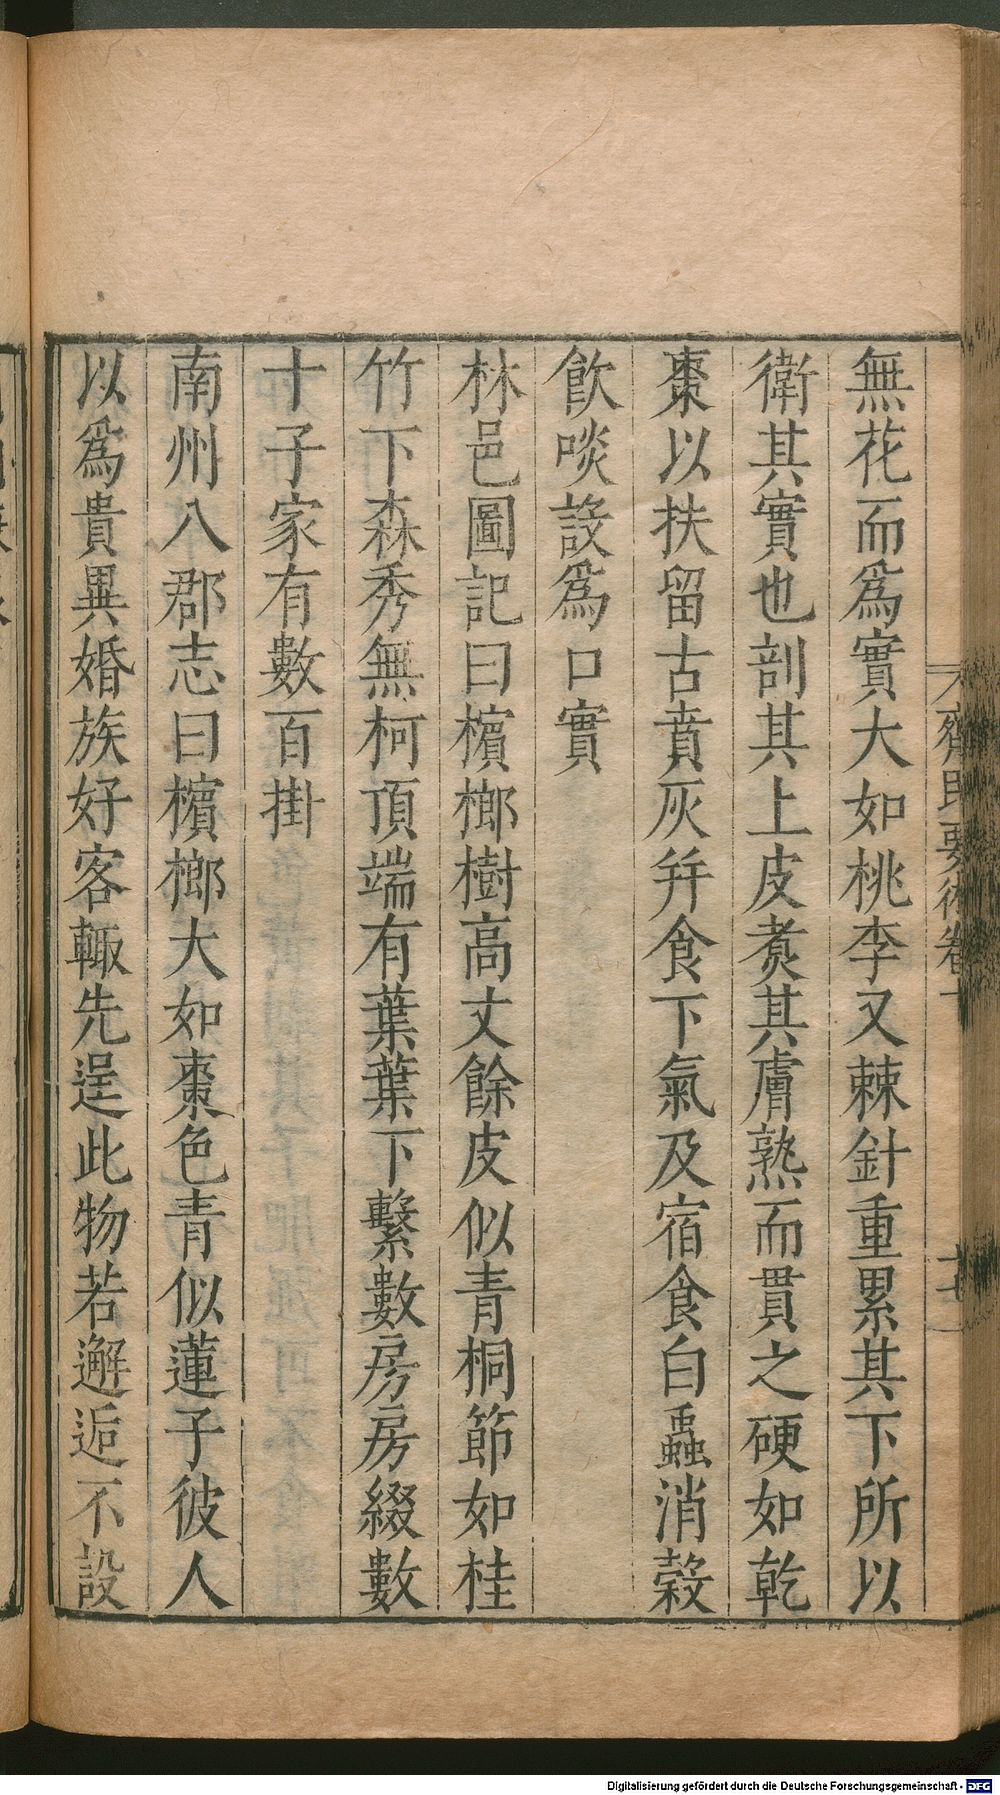 齊民要術卷十
無花而爲實大如桃李又棘針重累其下所以
衛其實也剖其上皮煑其膚熟而貫之硬如乾
棗以扶留古賁灰幷食下氣及宿食白蟲消穀
飲啖設爲口實
林邑圖記曰檳榔樹高丈餘皮似青桐節如桂
竹下森秀無柯頂端有葉葉下繫數房房綴數
十子家有數百掛
南州八郡志曰檳榔大如棗色青似蓮子彼人
以爲貴異婚族好客輙先逞此物若邂逅不設
Digitalisierung gefördert durch die Deutsche Forschungsgemeinschaft - DFG